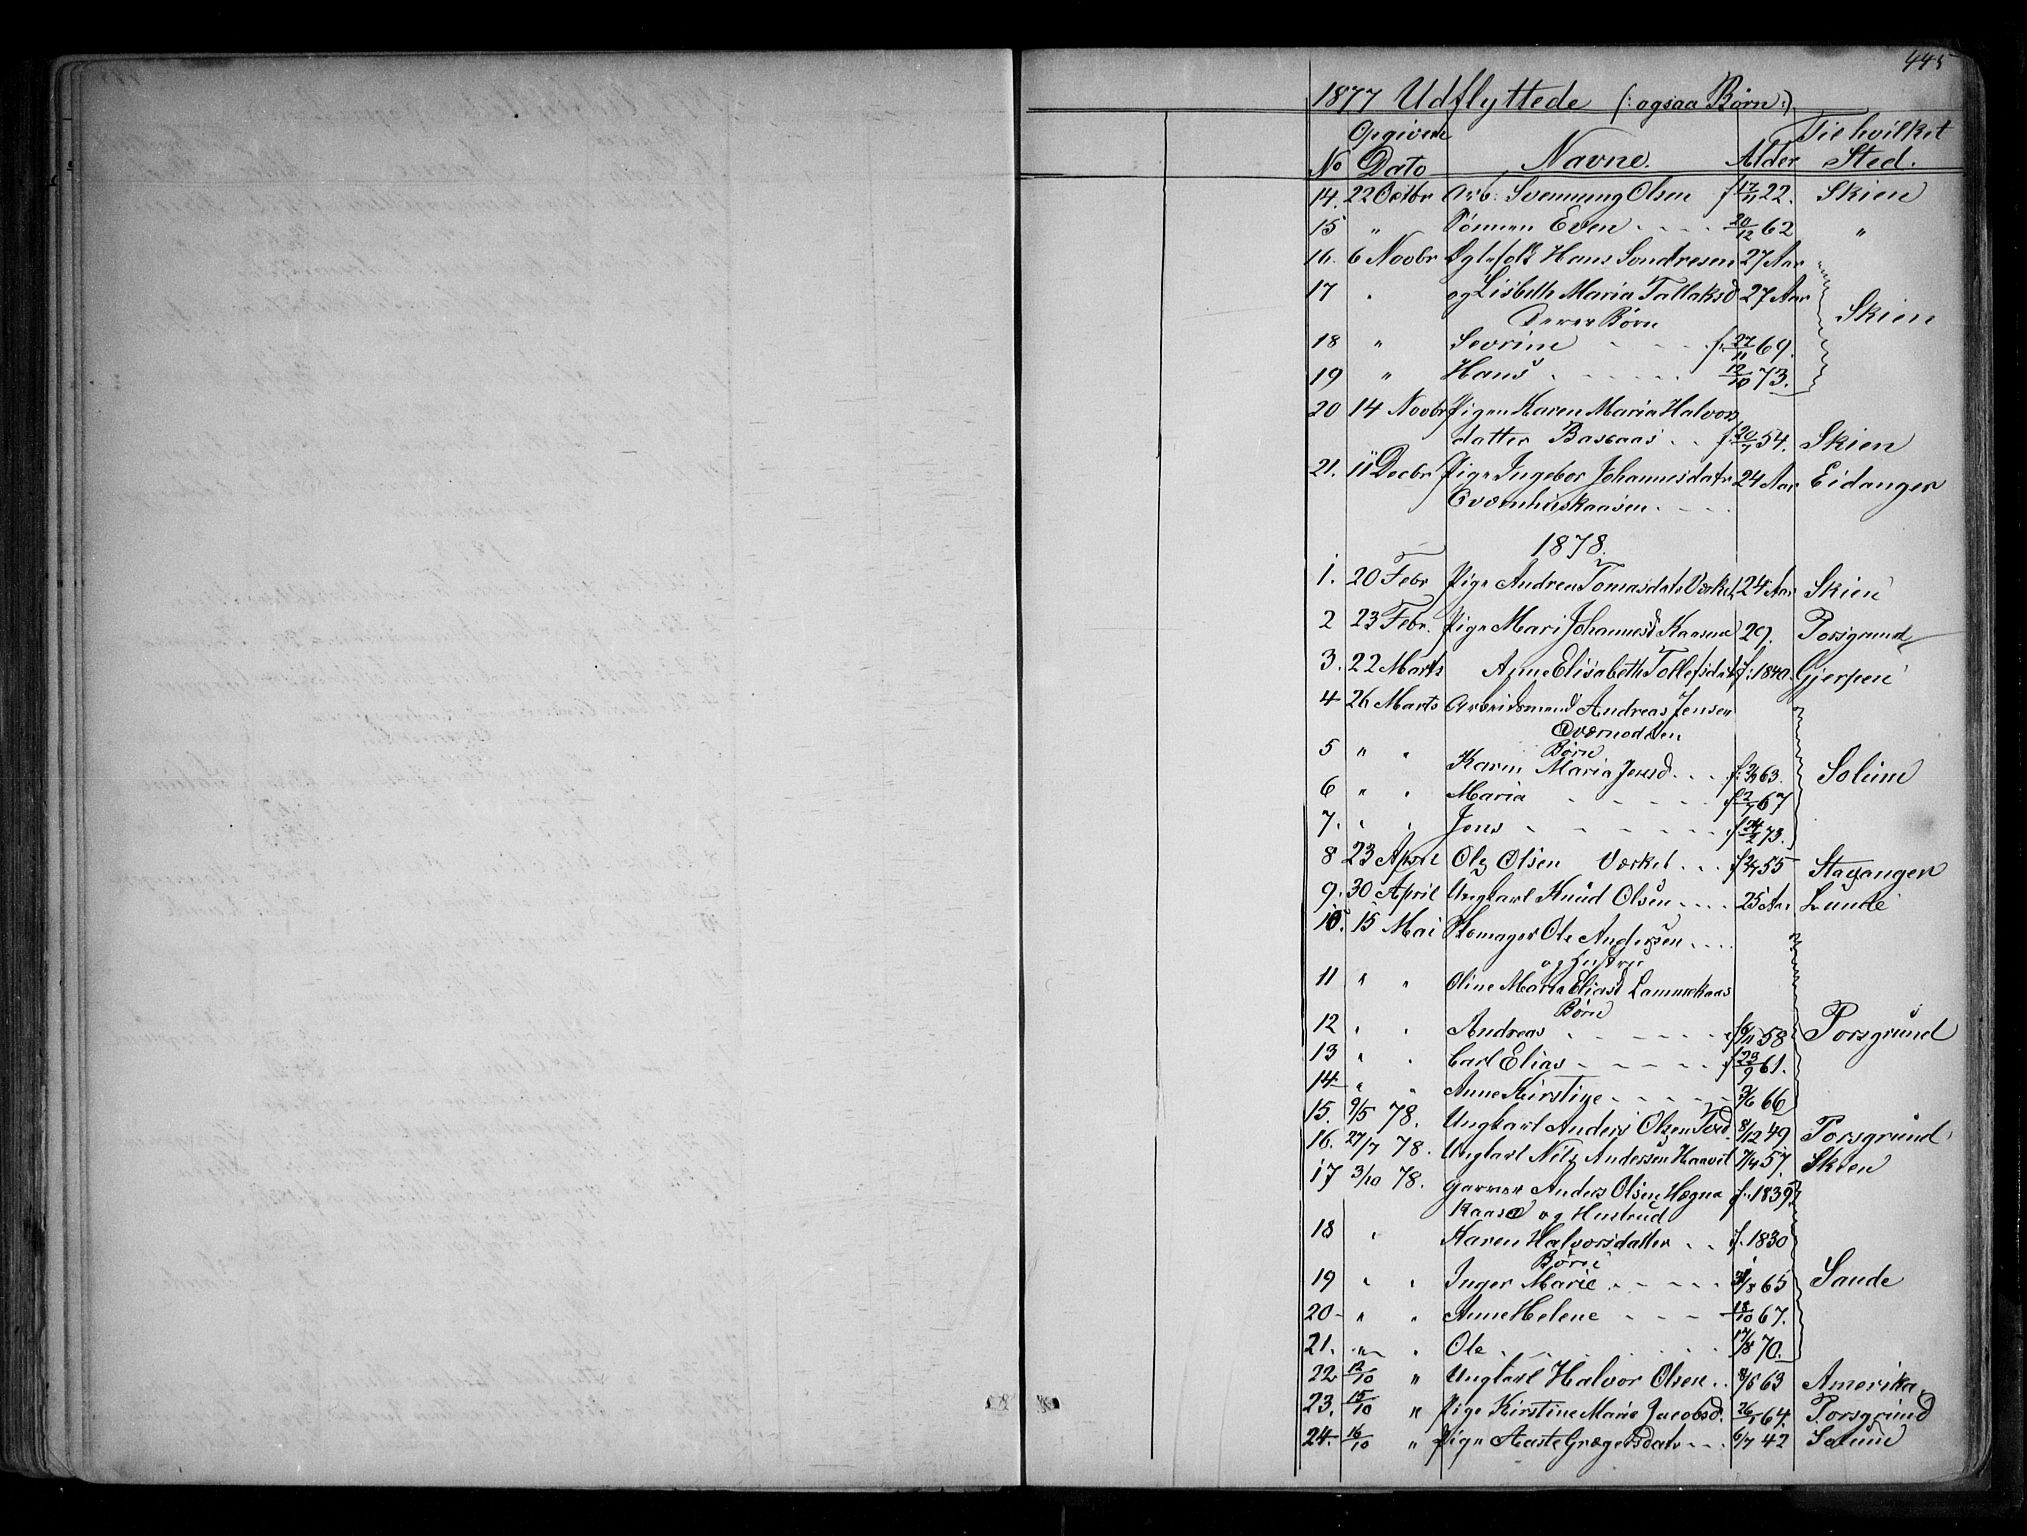 445
1877 Udflyttede (: ogsaa Børn :)
Opgiven Til hvilket
No Dato Navne. Alder Sted.
14. 22 Octbr Arb: Svennung Olsen f 17/11 22. Skien
15 " Sønnen Even 20/12 62 "
16. 6 Novbr Hans Sondresen 27 Aar "
17 " og Lisbeth Maria Tallaksd 27 Aar Skien
Deres Børn
18 " Sevrine f. 27/11 69.
19 " Hans 12/10 73.
20 14 Novbr Pigen Karen Maria Halvors
datter Bascaas f 20/7 54. Skien
21. 11 Decbr Pige Ingebor Johannesdatr 24 Aar Eidanger
Qværnhuskaasen
1878.
1. 20 Febr Pige Andrea Tomasdatr Værket 24 Aar Skien
2 23 Febr. Pige Mari Johannesd Kaasene 29. Porsgrund
3. 22 Marts Anne Elisabeth Tollefsdatr f. 1840. Gjerpen
4 26 Marts Arbeidsmand Andreas Jensen
Qværnodden
5 " " Børn
Karen Maria Jensd f. 63. Solum
6 " " Maria f 2/7 67
7. " " Jens f 24/2 73.
8 23 April Ole Olsen Værket f 55 Stavanger
9. 30 April Ungkarl Knud Olsen 25 Aar Lunde
10. 15 Mai Skomager Ole Andersen
og Hustru
11 " " Oline Maria Eliasd Lammekaas
Børn
12 " " Andreas f 6/11 58 Porsgrund
13 " " Carl Elias f 23/9 61.
14 " " Anne Kirstine 3/6 66
15. 9/5 78. Ungkarl Anders Olsen 8/12 49 Porsgrund
16. 27/7 78. Ungkarl Nils Andersen Haavet 7/4 57. Skien
17 3/10 78. Garver Anders Olsen Hægna f. 1839
kaasa og Hustrud
18 " Karen Halvorsdatter f. 1830
Børn
19 " " Inger Marie 31/8 65 Saude
20 " " Anne Helene 18/10 67.
21. " " Ole 17/8 70.
22 12/10 " Ungkarl Halvor Olsen 8/5 63 Amerika.
23. 15/10 " Pige Kirstine Marie Jacobsd. 26/5 64. Porsgrund
24. 16/10 " Pige Aaste Grægersdatr 6/7 42 Solum